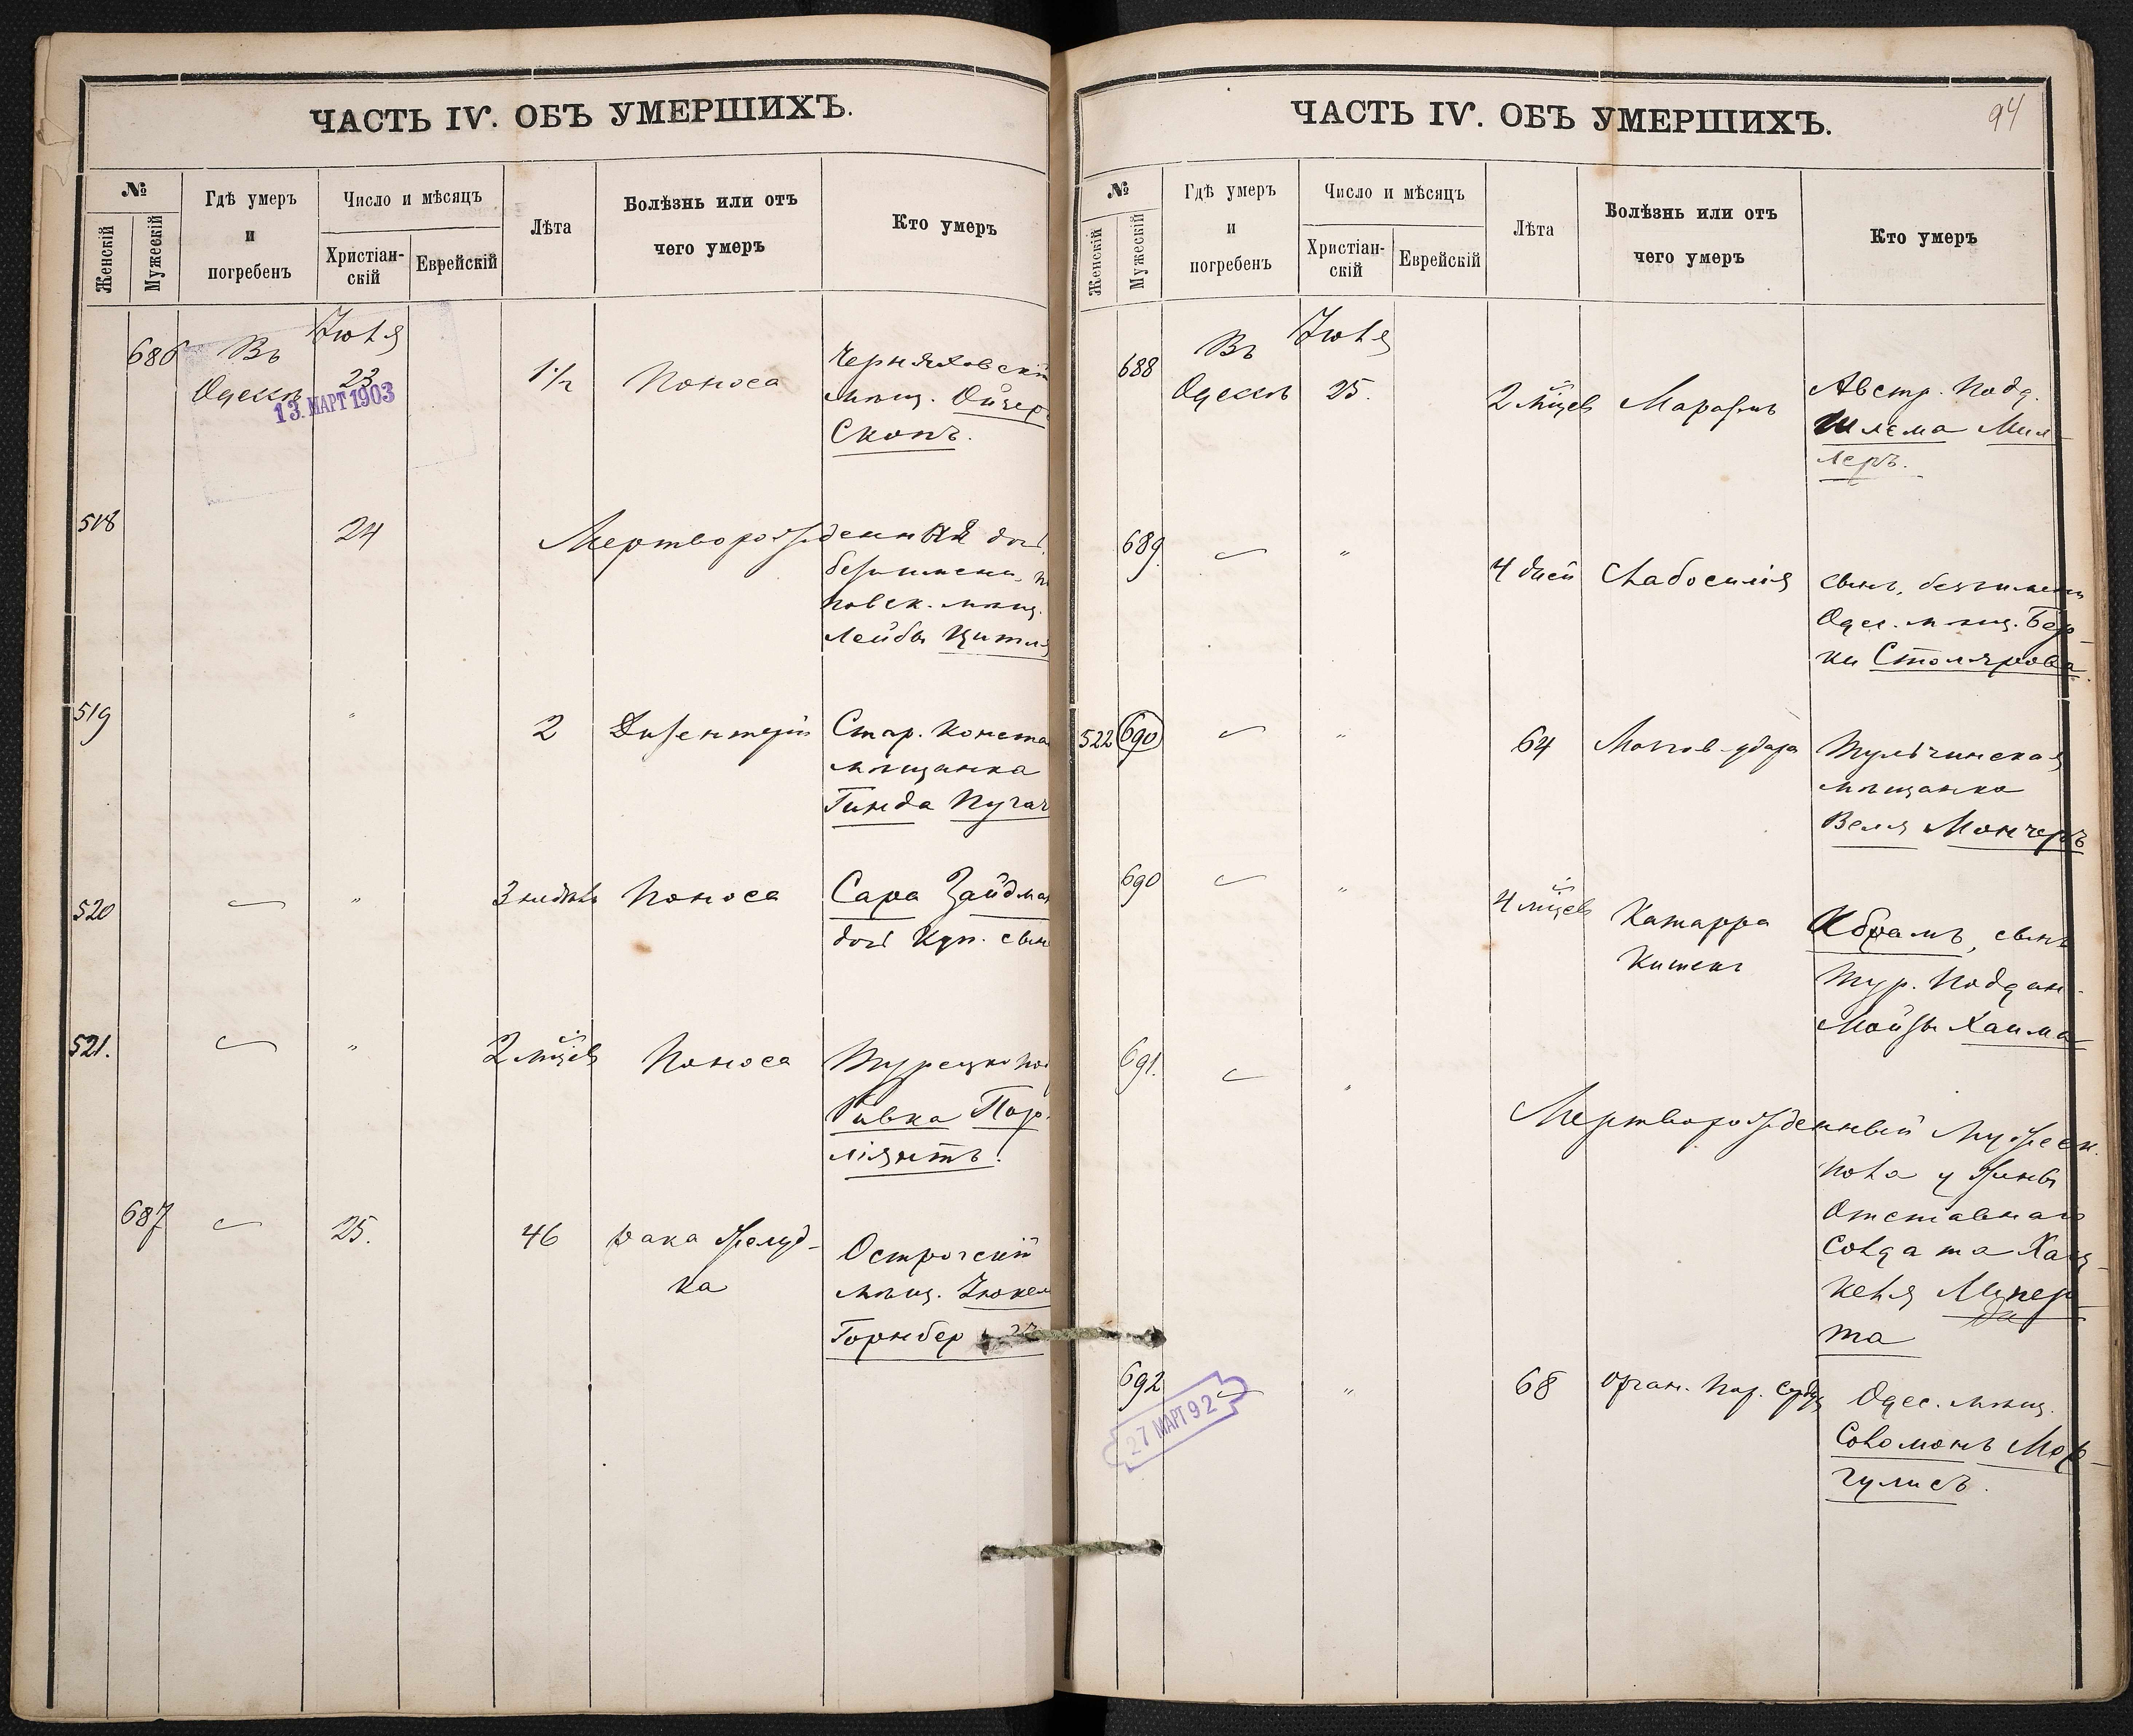 ЧАСТЬ IV. ОБЪ УМЕРШИХЪ.
№
Женскій
Мужескій
Гдѣ умеръ
и
погребенъ
Число и мѣсяцъ
Христіан-
скій
Еврейскій
Лѣта
Болѣзнь или отъ
чего умеръ
Кто умеръ
686 Въ Одессѣ Іюля 23 1½ Поноса Черняховскій
мѣщ. Ойзер
Скопъ.
13. МАРТ 1903
518 24 Мертворожденная доч.
безъимен.
повск. мѣщ.
Лейбы
519 " 2 Дизентеріи Стар. Конста
мѣщанка
Гинда Пугач
520 " 3 недѣль Поноса Сара Зайдман
доч Куп. сын
521. " 2 мѣсц Поноса Турецко под
Ривка Пор
ліянтъ.
687 25. 46 рака желуд-
ка
Острогскій
мѣщ. Зюкел
Горнбер
ЧАСТЬ IV. ОБЪ УМЕРШИХЪ.
94
№
Женскій
Мужескій
Гдѣ умеръ
и
погребенъ
Число и мѣсяцъ
Христіан-
скій
Еврейскій
Лѣта
Болѣзнь или отъ
чего умеръ
Кто умеръ
688 Въ Одессѣ Іюля 25. 2 мѣсцевъ Маразмъ Австр. Подд.
Шлема Мил-
леръ.
689. " 4 дней Слабосилія сынъ, безъимен
Одес. мѣщ. Бер-
ки Столярова.
522 690 " 64 Мозгов. удара Тульчинская
мѣщанка
Веля Мончеръ
690 " 4 мѣсцевъ Катарра
Кишекъ
Абрамъ, сынъ
Тур. Поддан.
Мойзы Хаима
691. " Мертворожденный мужеск.
пола у жены
Отставнаго
Солдата Хац-
келя
та
692 " 68 Орган. пор. сердца Одес. мѣщ.
Соломонъ Мар-
гулисъ.
27 МАРТ 92